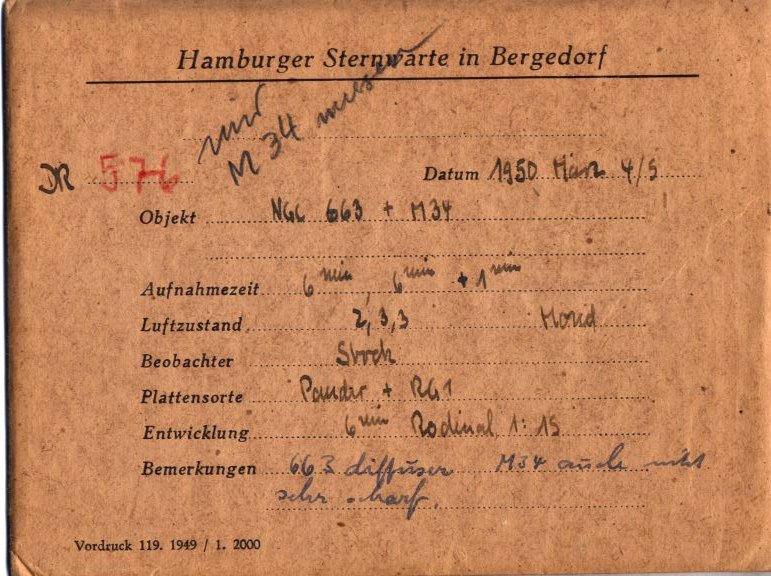 Hamburger Sternwarte in Bergedorf
nur
M 34 messen
DR 576
Datum 1950 März 4/5
Objekt NGC 663 + M34
Aufnahmezeit 6 min, 6 min + 1 min
Luftzustand 2, 3, 3 Mond
Beobachter Stock
Plattensorte + RG1
Entwicklung 6 min Rodinal 1:15
Bemerkungen 663 diffuser M34 auch nicht
sehr scharf.
Vordruck 119. 1949 / 1. 2000